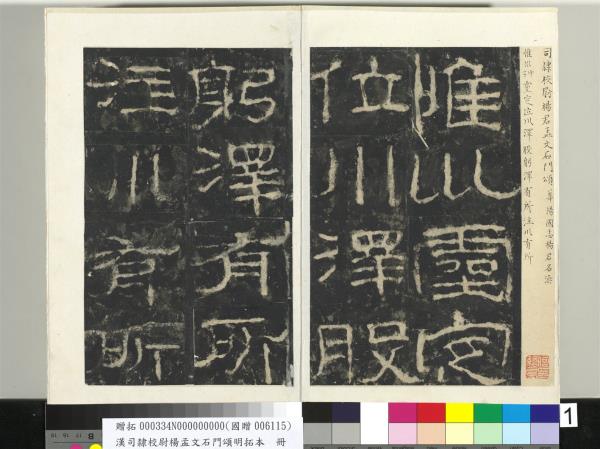 司隸校尉楊君孟文石門頌 華陽國志楊君名渙
惟巛坤靈定位川澤股躬澤有所注川有所
惟巛靈定
位川澤股
躬澤有所
注川有所
贈拓 000334N000000000(國贈 006115)
漢司隸校尉楊孟文石門頌明拓本 冊
1